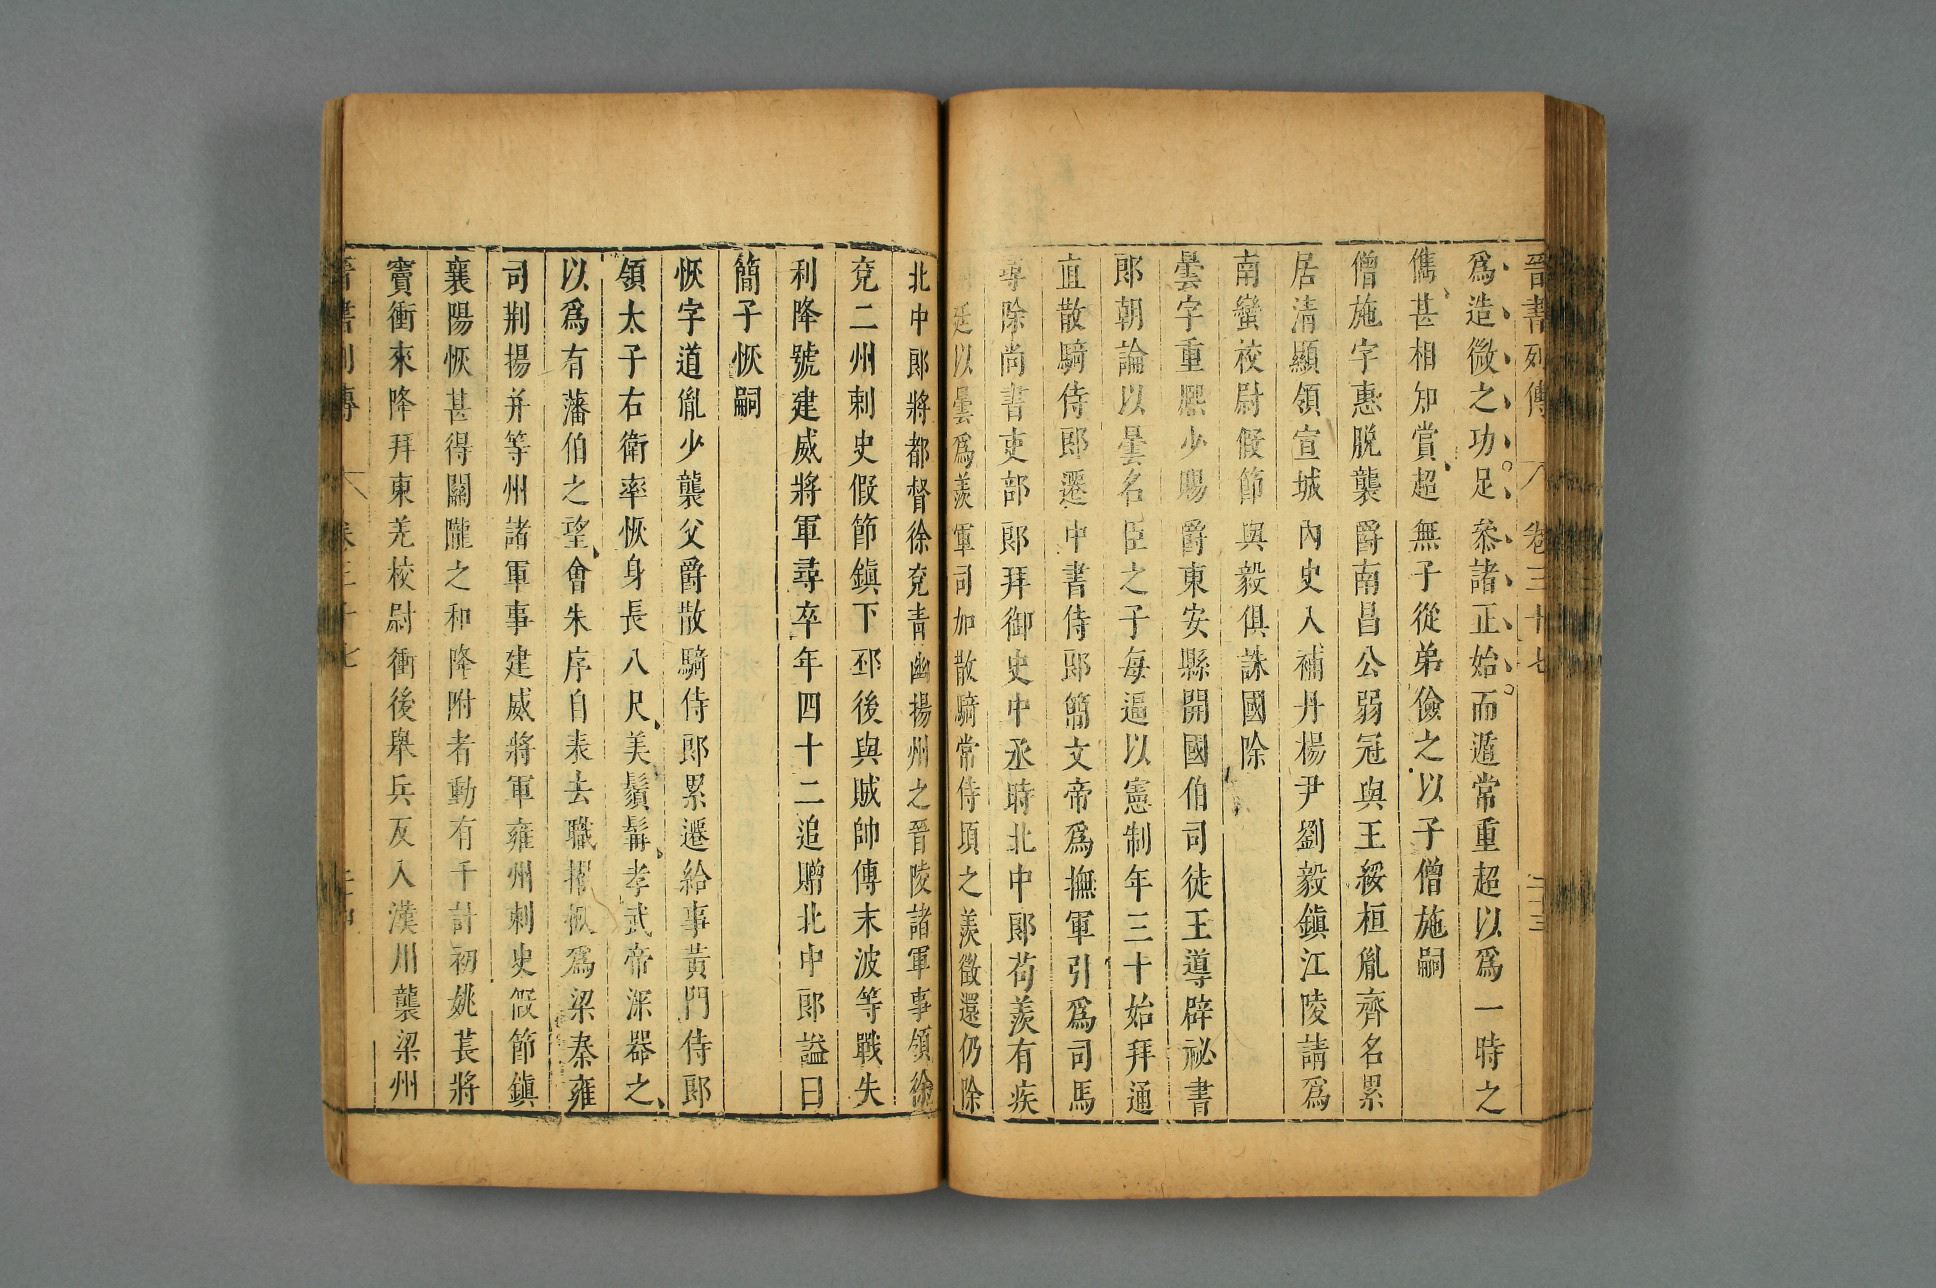 晉書列傳 卷三十七 二十三
爲造微之功足叅諸正始而遁常重超以爲一時之
儁甚相知賞超無子從弟儉之以子僧施嗣
僧施字惠脫襲爵南昌公弱冠與王綏桓胤齊名累
居清顯領宣城內史入補丹楊尹劉毅鎭江陵請爲
南蠻校尉假節與毅俱誅國除
曇字重熙少賜爵東安縣開國伯司徒王導辟祕書
郎朝論以曇名臣之子每逼以憲制年三十始拜通
直散騎侍郎遷中書侍郎簡文帝爲撫軍引爲司馬
尋除尚書吏部郎拜御史中丞時北中郎荀羨有疾
朝廷以曇爲羨軍司加散騎常侍頃之羨徵還仍除
北中郎將都督徐兗靑幽揚州之晉陵諸軍事領徐
兗二州刺史假節鎭下邳後與賊帥傅末波等戰失
利降號建威將軍尋卒年四十二追贈北中郎謚曰
簡子恢嗣
恢字道胤少襲父爵散騎侍郎累遷給事黃門侍郎
領太子右衛率恢身長八尺美鬚髯孝武帝深器之
以爲有藩伯之望會朱序自表去職擢恢爲梁秦雍
司荆揚并等州諸軍事建威將軍雍州刺史假節鎭
襄陽恢甚得關隴之和降附者動有千計初姚萇將
竇衝來降拜東羌校尉衝後舉兵反入漢川襲梁州
晉書列傳 卷三十七 二十四